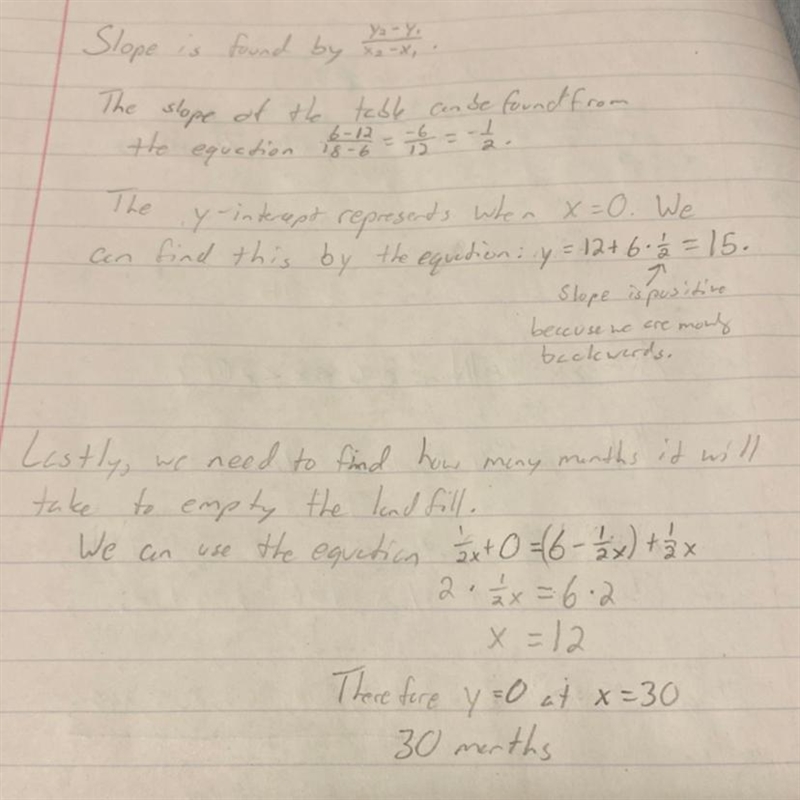 Slope is found by \frac{y₂-y₁}{x₂-x₁}.
The slope of the table can be found from
the equation \frac{6-12}{18-6} = \frac{-6}{12} = -\frac{1}{2}.
The y-intercept represents when x=0. We
can find this by the equation: y = 12+6·\frac{1}{2} = 15.
Slope is positive
because we are
backwards.
Lastly, we need to find how many months it will
take to empty the landfill.
We can use the equation \frac{1}{2}x+0=(6-\frac{1}{2}x)+\frac{1}{2}x
2·\frac{1}{2}x=6·2
x=12
Therefore y=0 at x=30
30 months